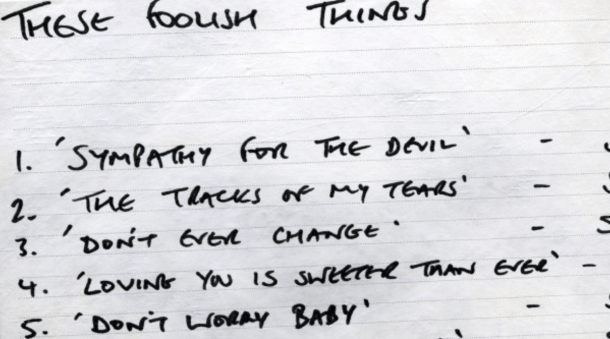 THESE FOOLISH THINGS
1. 'SYMPATHY FOR THE DEVIL' -
2. 'THE TRACKS OF MY TEARS' -
3. 'DON'T EVER CHANGE' - S
4. 'LOVING YOU IS SWEETER THAN EVER' -
5. 'DON'T WORRY BABY' -